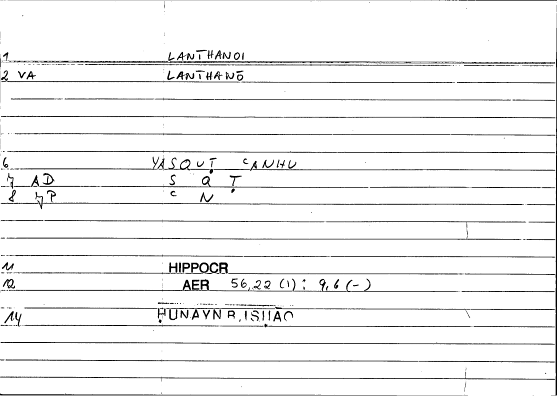 1 LANTHANOI
2 VA LANTHANŌ
6 YASQUṬ ᶜANHU
7 AD S Q Ṭ
8 P ᶜ N
11 HIPPOCR
12 AER 56,22 (1) : 9,6 (-)
14 ḤUNAYN B. ISḤĀQ